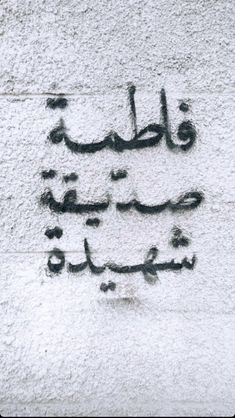 فاطمة
صدّيقة
شهيدة